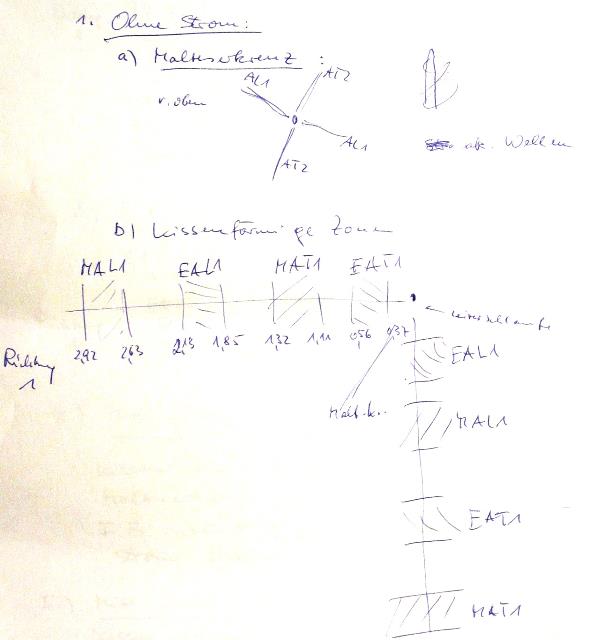 1. Ohne Strom:
a) Malteserkreuz :
AL1
AT2
v. oben
AL1
AT2
Wellen
b) kissenförmige Zonen
MAL1 EAL1 MAT1 EAT1
2,92 2,63 2,13 1,85 1,32 1,11 0,56 0,37
Richtung
1
EAL1
MAL1
EAT1
MAT1